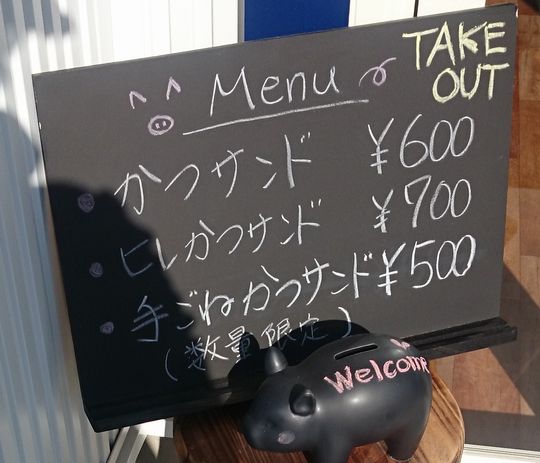 Menu
TAKE
OUT
かつサンド ¥600
ヒレかつサンド ¥700
手ごねかつサンド ¥500
(数量限定)
Welcome